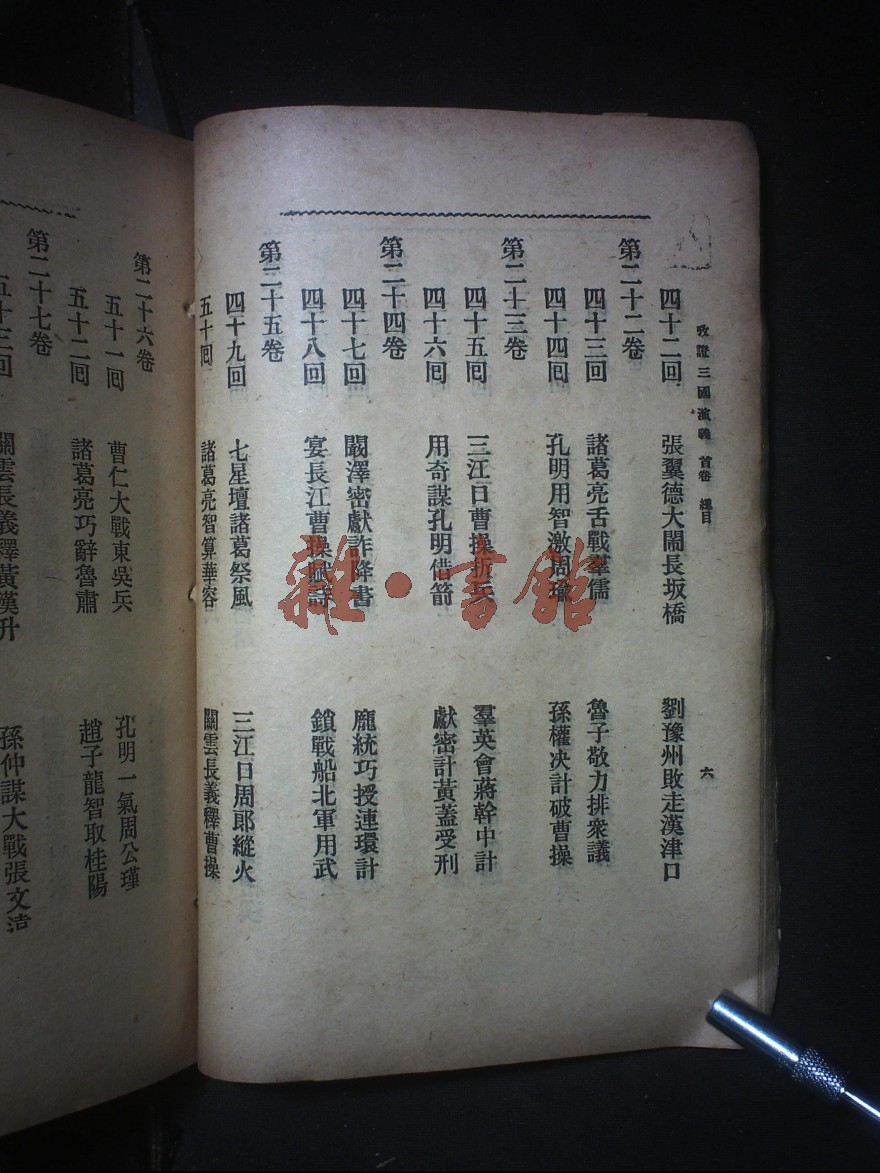 攷證三國演義 首卷 總目
六
四十二囘 張翼德大鬧長坂橋 劉豫州敗走漢津口
第二十二卷
四十三囘 諸葛亮舌戰羣儒 魯子敬力排衆議
四十四囘 孔明用智激周瑜 孫權決計破曹操
第二十三卷
四十五囘 三江口曹操折兵 羣英會蔣幹中計
四十六囘 用奇謀孔明借箭 獻密計黃蓋受刑
第二十四卷
四十七囘 闞澤密獻詐降書 龐統巧授連環計
四十八囘 宴長江曹操賦詩 鎖戰船北軍用武
第二十五卷
四十九囘 七星壇諸葛祭風 三江口周郎縱火
五十囘 諸葛亮智算華容 關雲長義釋曹操
第二十六卷
五十一囘 曹仁大戰東吳兵 孔明一氣周公瑾
五十二囘 諸葛亮巧辭魯肅 趙子龍智取桂陽
第二十七卷
五十三囘 關雲長義釋黃漢升 孫仲謀大戰張文遠
雜·書館